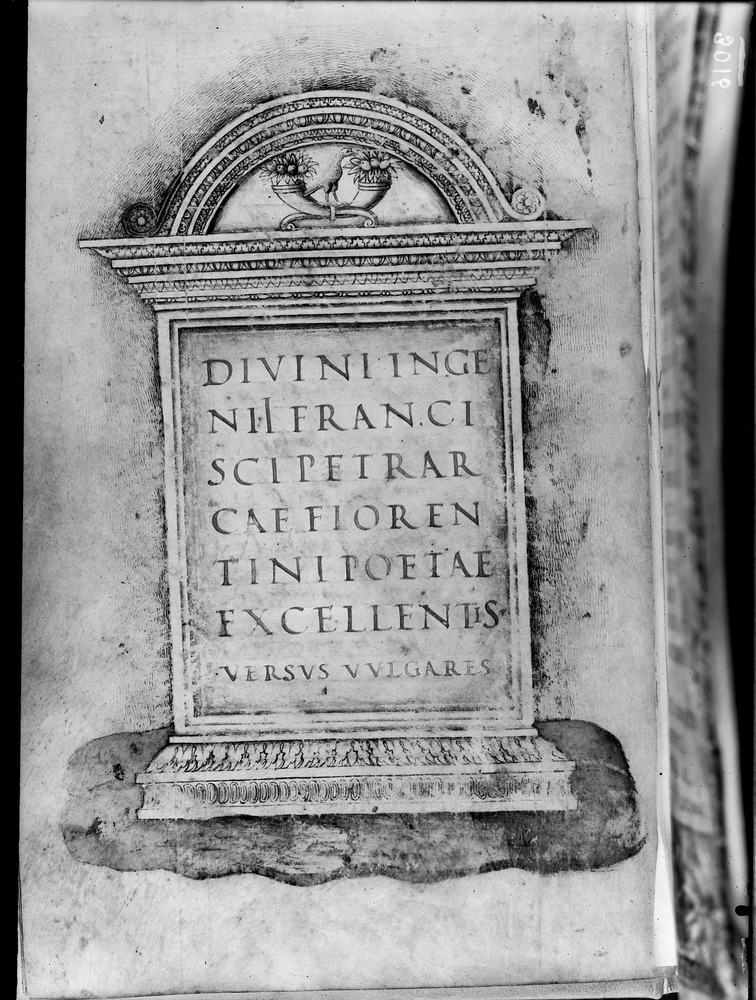 DIVINI INGE
NII FRAN.CI
SCI PETRAR
CAE FIOREN
TINI POETAE
EXCELLENTIS
VERSVS VVLGARES
9106